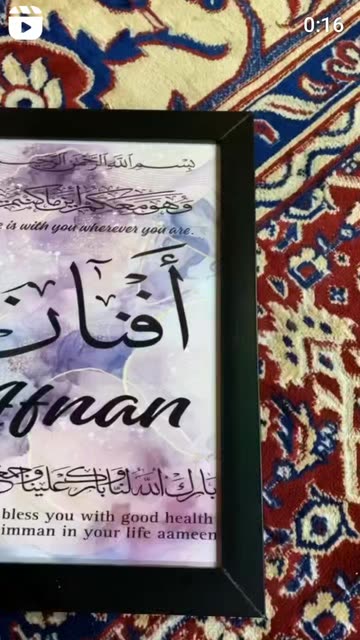 0:16
بسم الله الرحمن الرحيم
وهو معكم أين ما كنتم
is with you wherever you are.
أفنان
Afnan
بارك الله لنا وبارك علينا
bless you with good health
imman in your life aameen